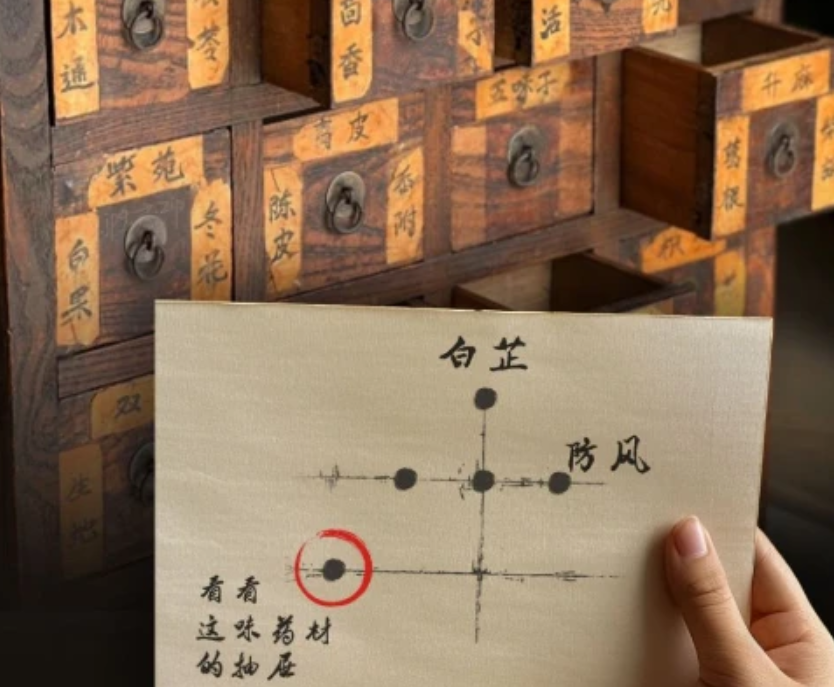 木通
茴香
活
升麻
五味子
青皮
葛根
紫苑
陈皮
香附
白果
冬花
双
生地
白芷
防风
看看
这味药材
的抽屉